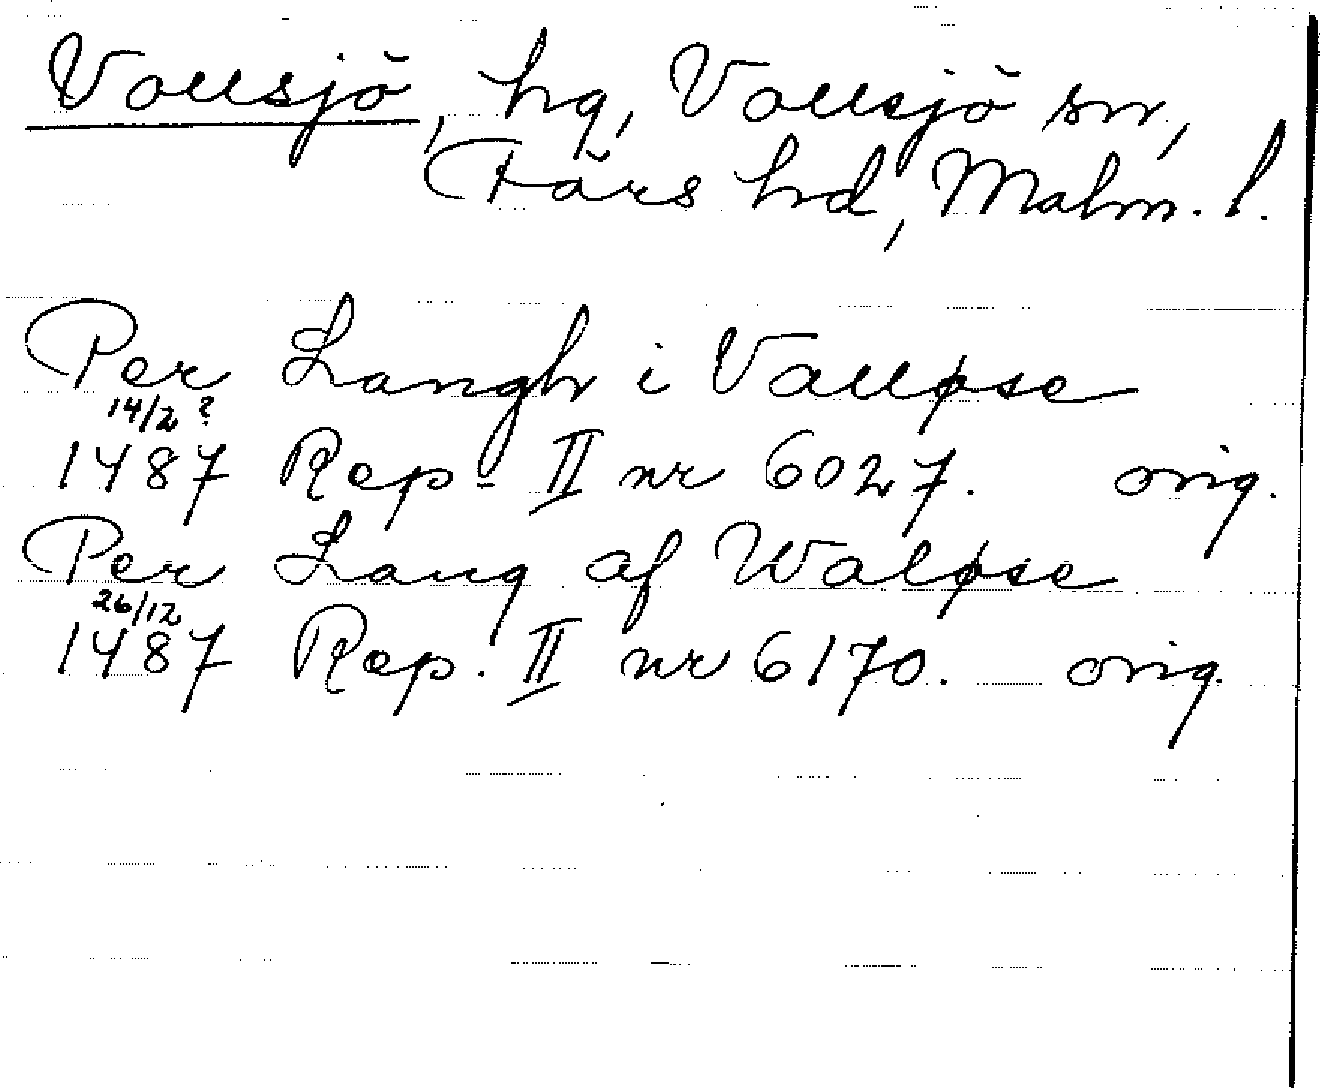 Vollsjö, hg, Vollsjö sn,
Färs hd, Malm. l.
Per Langh i Valløse
14/2 ?
1487 Rep. II nr 6027. orig.
Per Lang af Waløse
26/12
1487 Rep. II nr 6170. orig.